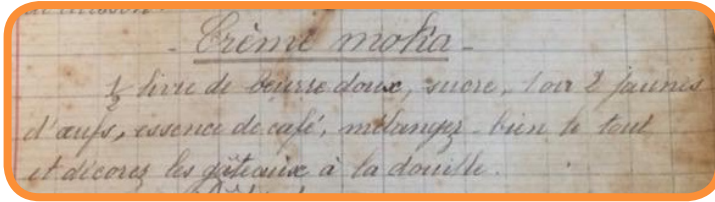 - Crème moka -
1/2 livre de beurre doux, sucre, 1 ou 2 jaunes
d'œufs, essence de café, mélangez bien le tout
et décorez les gâteaux à la douille.